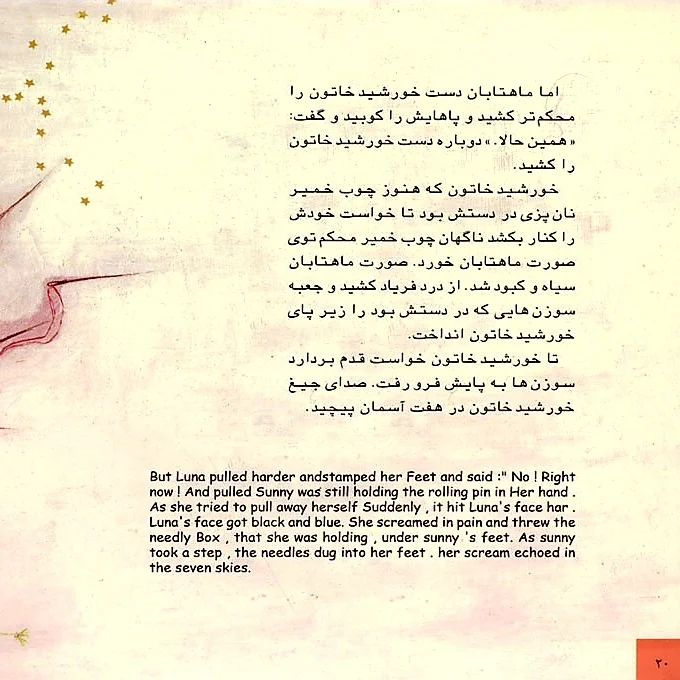 اما ماهتابان دست خورشیدخاتون را
محکم‌تر کشید و پاهایش را کوبید و گفت:
«همین حالا.» دوباره دست خورشیدخاتون
را کشید.
خورشیدخاتون که هنوز چوب خمیر
نان‌پزی در دستش بود تا خواست خودش
را کنار بکشد ناگهان چوب خمیر محکم توی
صورت ماهتابان خورد. صورت ماهتابان
سیاه و کبود شد. از درد فریاد کشید و جعبه
سوزن‌هایی که در دستش بود را زیر پای
خورشیدخاتون انداخت.
تا خورشیدخاتون خواست قدم بردارد
سوزن‌ها به پایش فرو رفت. صدای جیغ
خورشیدخاتون در هفت آسمان پیچید.
But Luna pulled harder andstamped her Feet and said :" No ! Right
now ! And pulled Sunny was still holding the rolling pin in Her hand .
As she tried to pull away herself Suddenly , it hit Luna's face har .
Luna's face got black and blue. She screamed in pain and threw the
needly Box , that she was holding , under sunny 's feet. As sunny
took a step , the needles dug into her feet . her scream echoed in
the seven skies.
۲۰